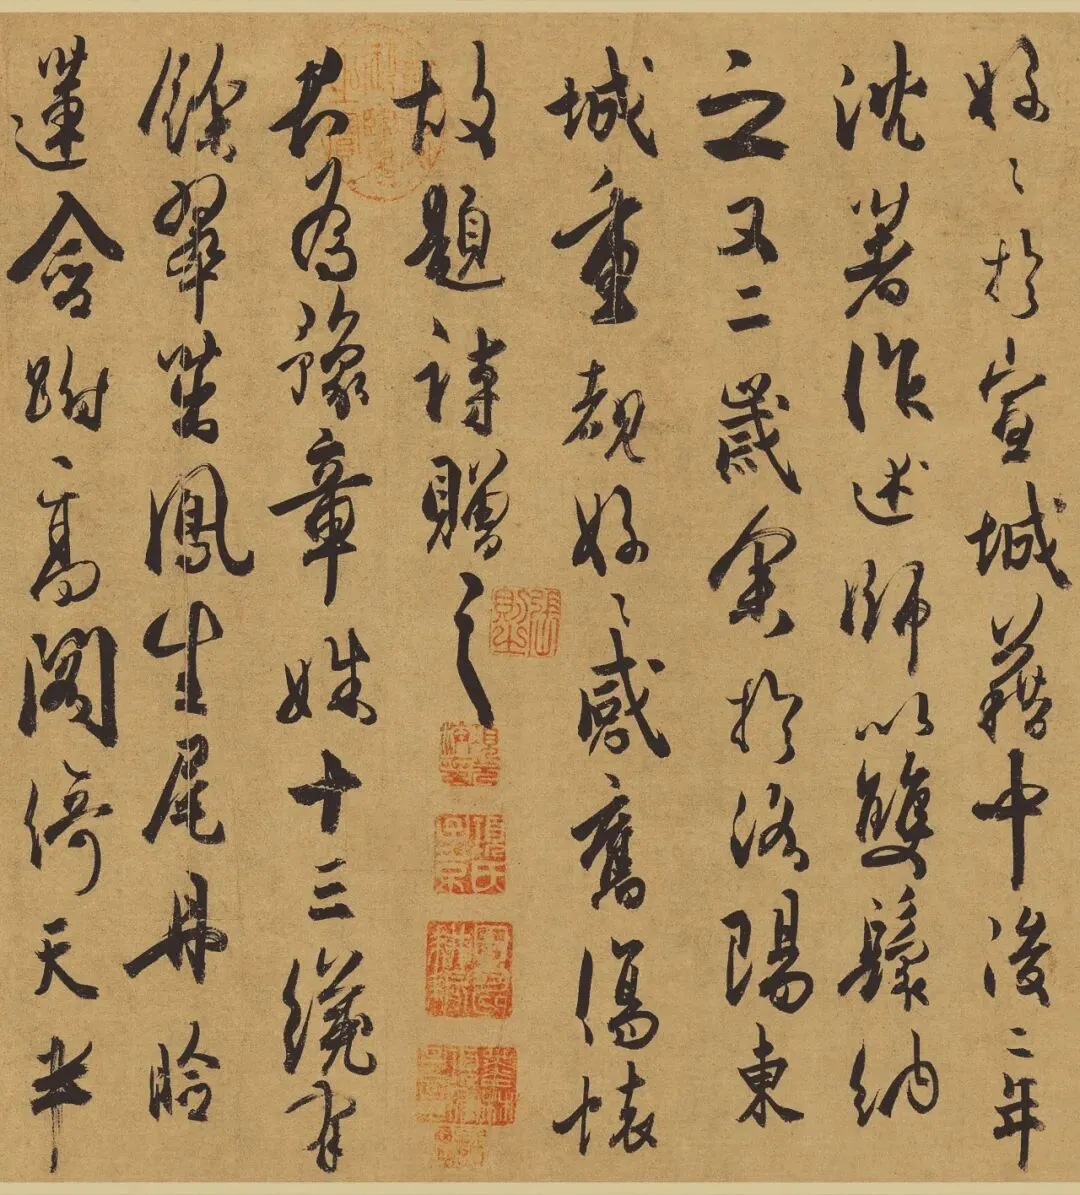 好〻於宣城籍中後二年
沈著作述師以雙鬟納
之又二歲余於洛陽東
城重覩好〻感舊傷懷
故題詩贈之
張則之
君為豫章姝十三纔有
餘翠茁鳳生尾丹臉
蓮含跗高閣倚天半